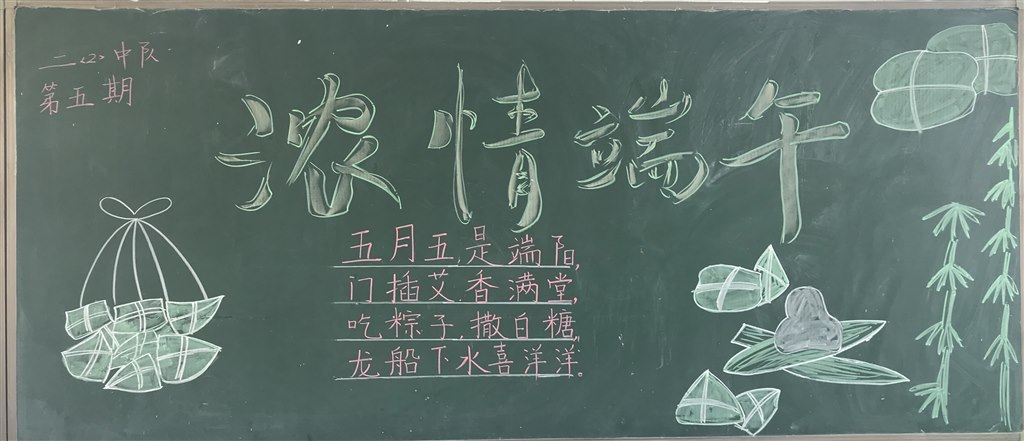 二(2)中队
第五期
浓情端午
五月五,是端阳,
门插艾,香满堂,
吃粽子,撒白糖,
龙船下水喜洋洋.